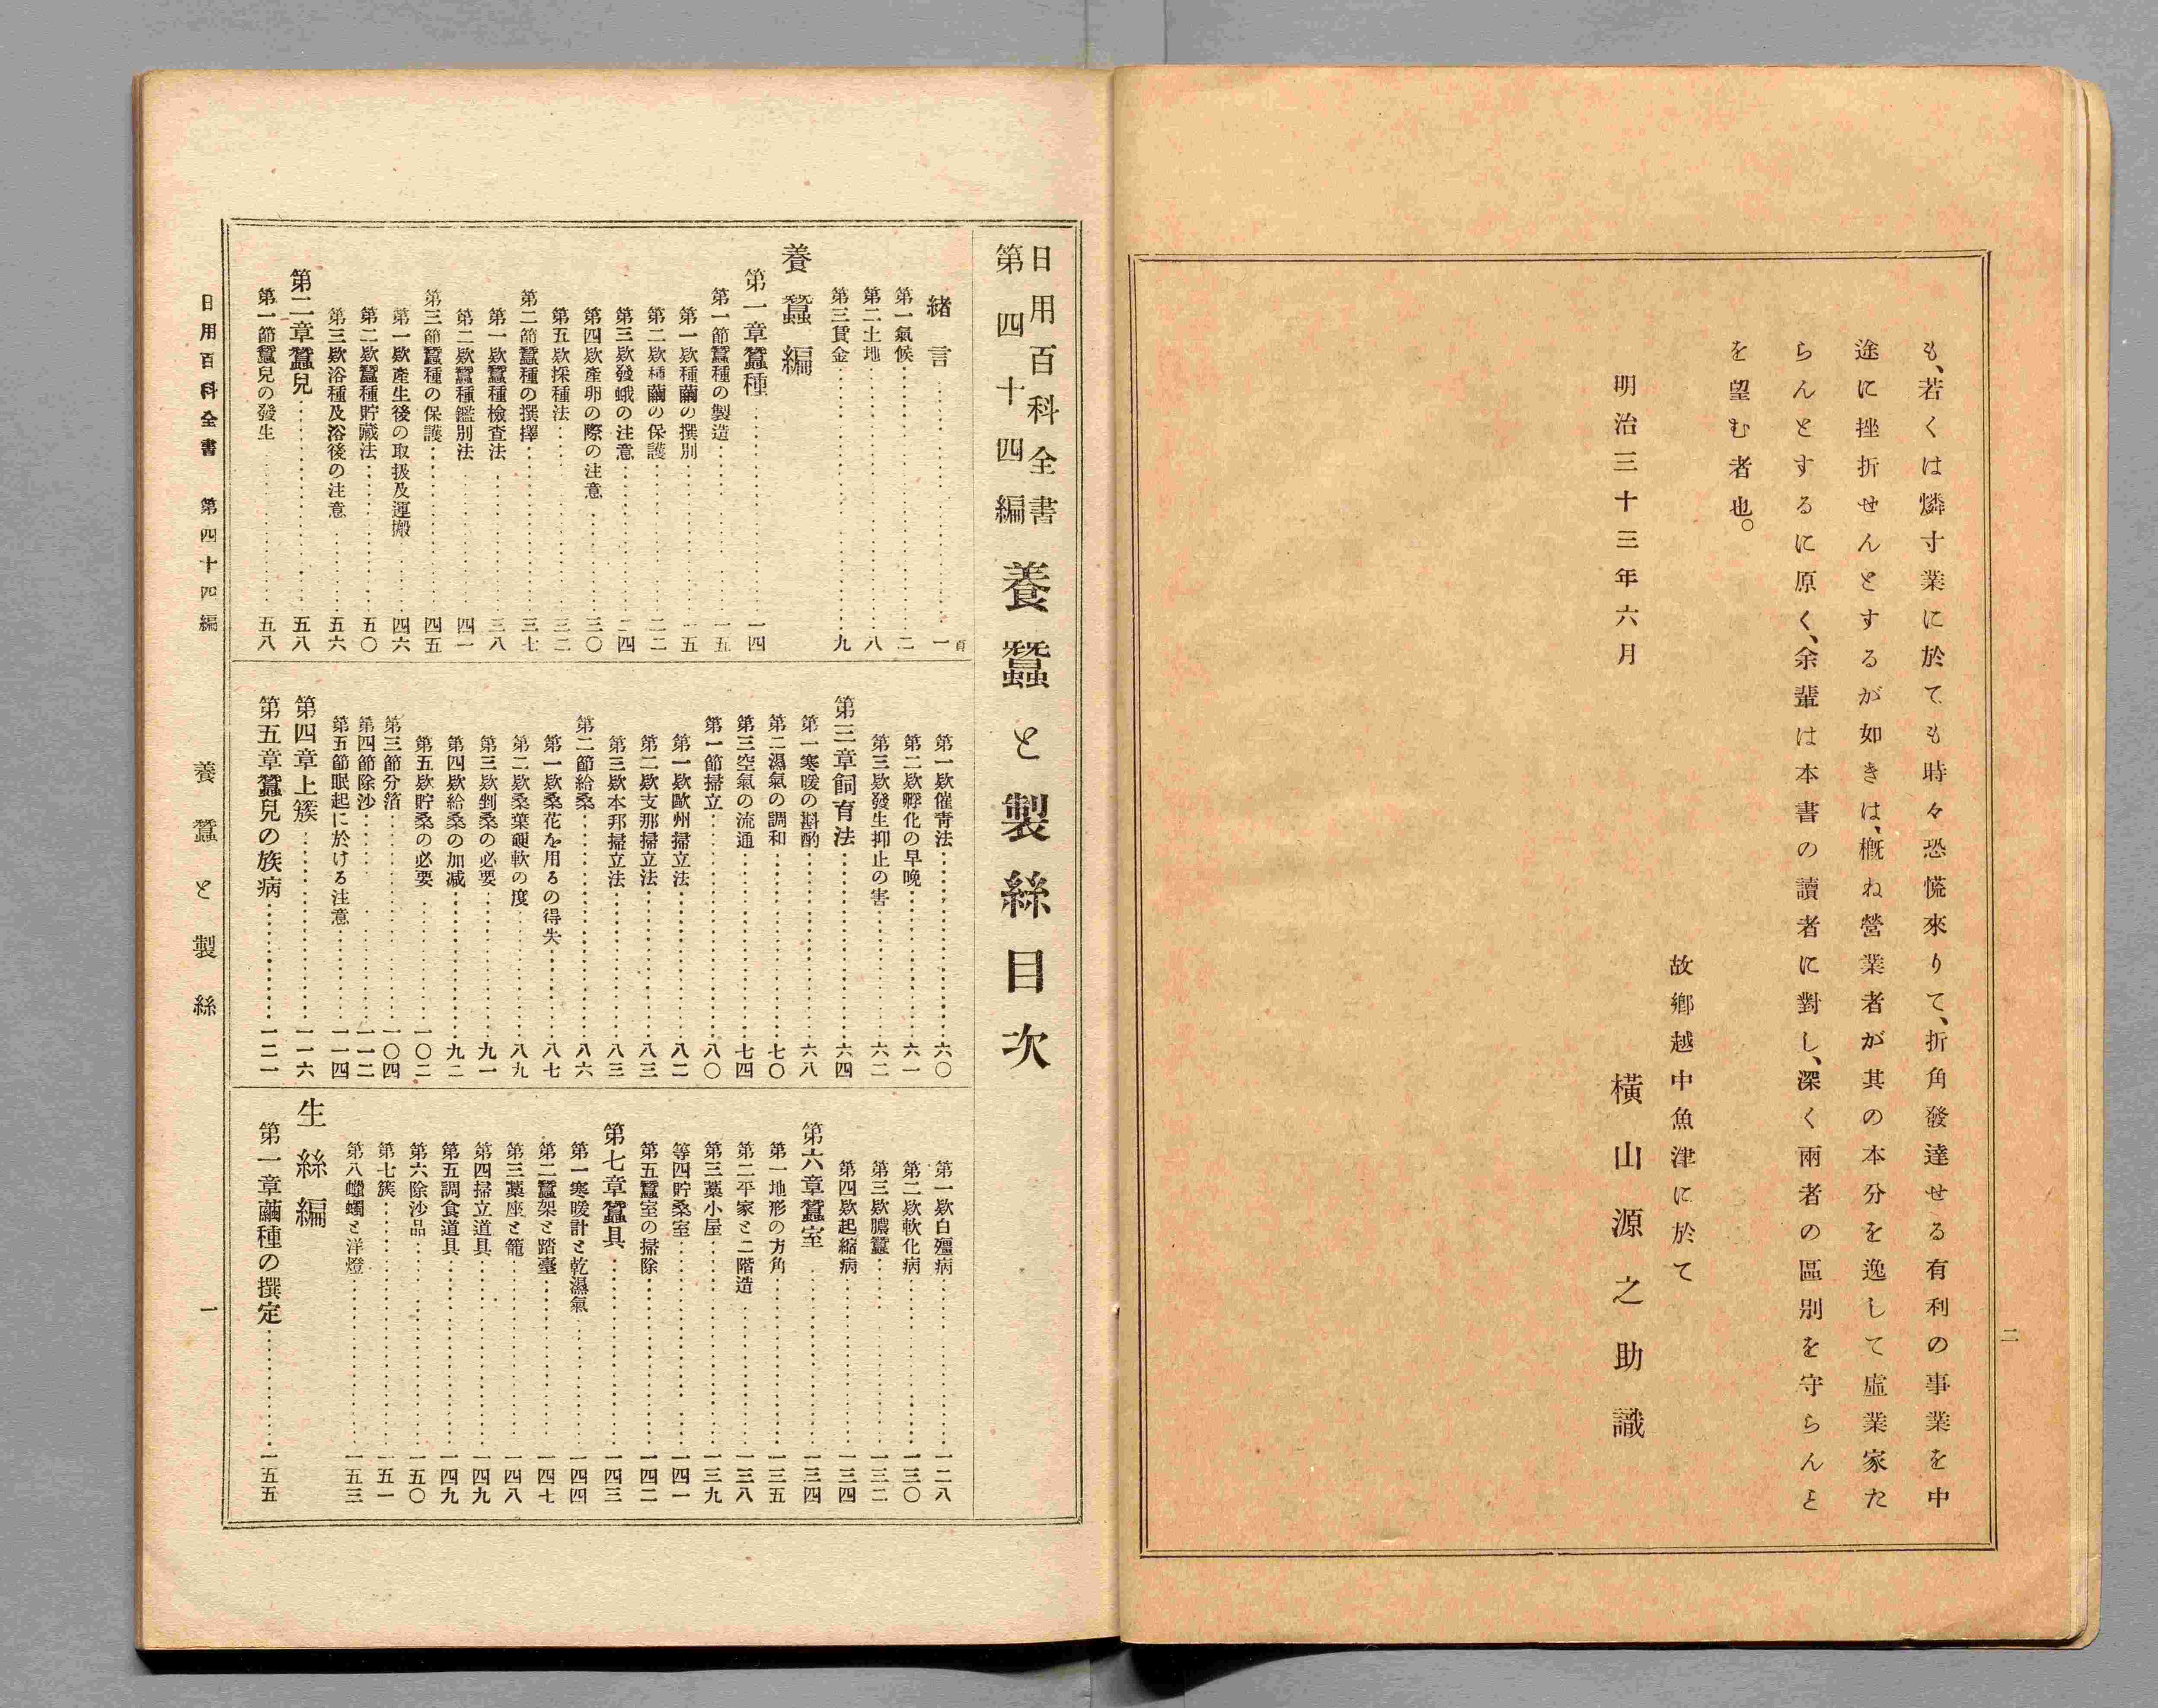 も、若くは燐寸業に於ても時々恐慌來りて、折角發達せる有利の事業を中
途に挫折せんとするが如きは、概ね營業者が其の本分を逸して虛業家た
らんとするに原く、余輩は本書の讀者に對し、深く兩者の區別を守らんと
を望む者也。
故鄉越中魚津に於て
明治三十三年六月
橫山源之助識
二
日用百科全書
第四十四編
養蠶と製絲目次
頁
緖言……一
第一氣候……二
第二土地……八
第三賃金……九
養蠶編
第一章蠶種……一四
第一節蠶種の製造……一五
第一欵種繭の撰別……一五
第二欵種繭の保護……二二
第三欵發蛾の注意……二四
第四欵產卵の際の注意……三〇
第五欵採種法……三二
第二節蠶種の撰擇……三七
第一欵蠶種檢査法……三八
第二欵蠶種鑑別法……四一
第三節蠶種の保護……四五
第一欵產生後の取扱及運搬……四六
第二欵蠶種貯藏法……五〇
第三欵浴種及浴後の注意……五六
第二章蠶兒……五八
第一節蠶兒の發生……五八
第一欵催靑法……六〇
第二欵孵化の早晚……六一
第三欵發生抑止の害……六二
第三章飼育法……六四
第一寒暖の斟酌……六八
第二濕氣の調和……七〇
第三空氣の流通……七四
第一節掃立……八〇
第一欵歐州掃立法……八二
第二欵支那掃立法……八三
第三欵本邦掃立法……八三
第二節給桑……八六
第一欵桑花を用るの得失……八七
第二欵桑葉硬軟の度……八九
第三欵剉桑の必要……九一
第四欵給桑の加減……九二
第五欵貯桑の必要……一〇二
第三節分箔……一〇四
第四節除沙……一一二
第五節眠起に於ける注意……一一四
第四章上簇……一一六
第五章蠶兒の族病……一二一
第一欵白殭病……一二八
第二欵軟化病……一三〇
第三欵膿蠶……一三二
第四欵起縮病……一三四
第六章蠶室……一三四
第一地形の方角……一三五
第二平家と二階造……一三八
第三藁小屋……一三九
等四貯桑室……一四一
第五蠶室の掃除……一四二
第七章蠶具……一四三
第一寒暖計と乾濕氣……一四四
第二蠶架と踏臺……一四七
第三藁座と籠……一四八
第四掃立道具……一四九
第五調食道具……一四九
第六除沙品……一五〇
第七簇……一五一
第八蠟蠋と洋燈……一五三
生絲編
第一章繭種の撰定……一五五
日用百科全書　第四十四編　養蠶と製絲　一